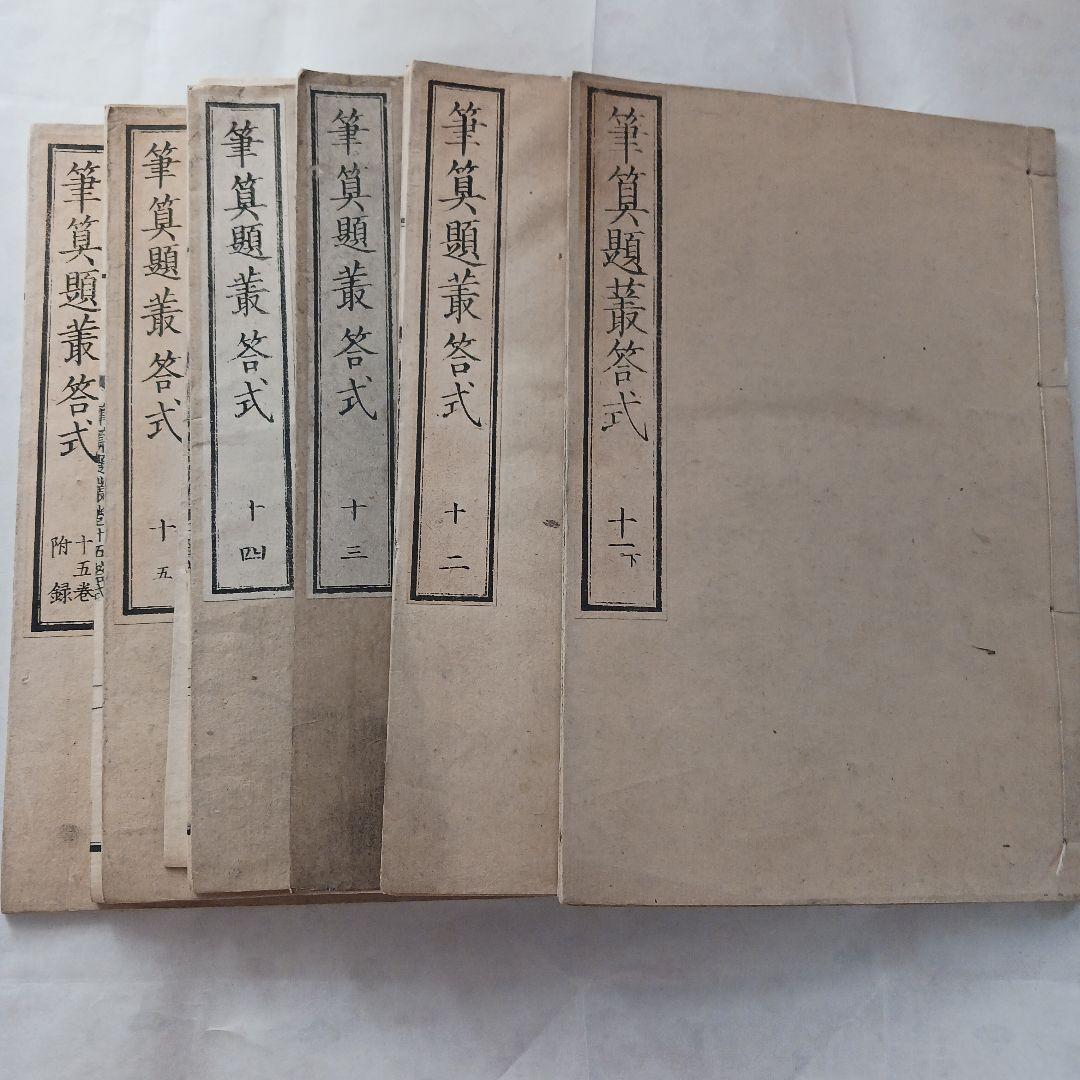 筆算題叢答式 十一下
筆算題叢答式 十二
筆算題叢答式 十三
筆算題叢答式 十四
筆算題叢答式 十五
筆算題叢答式 十五卷附録